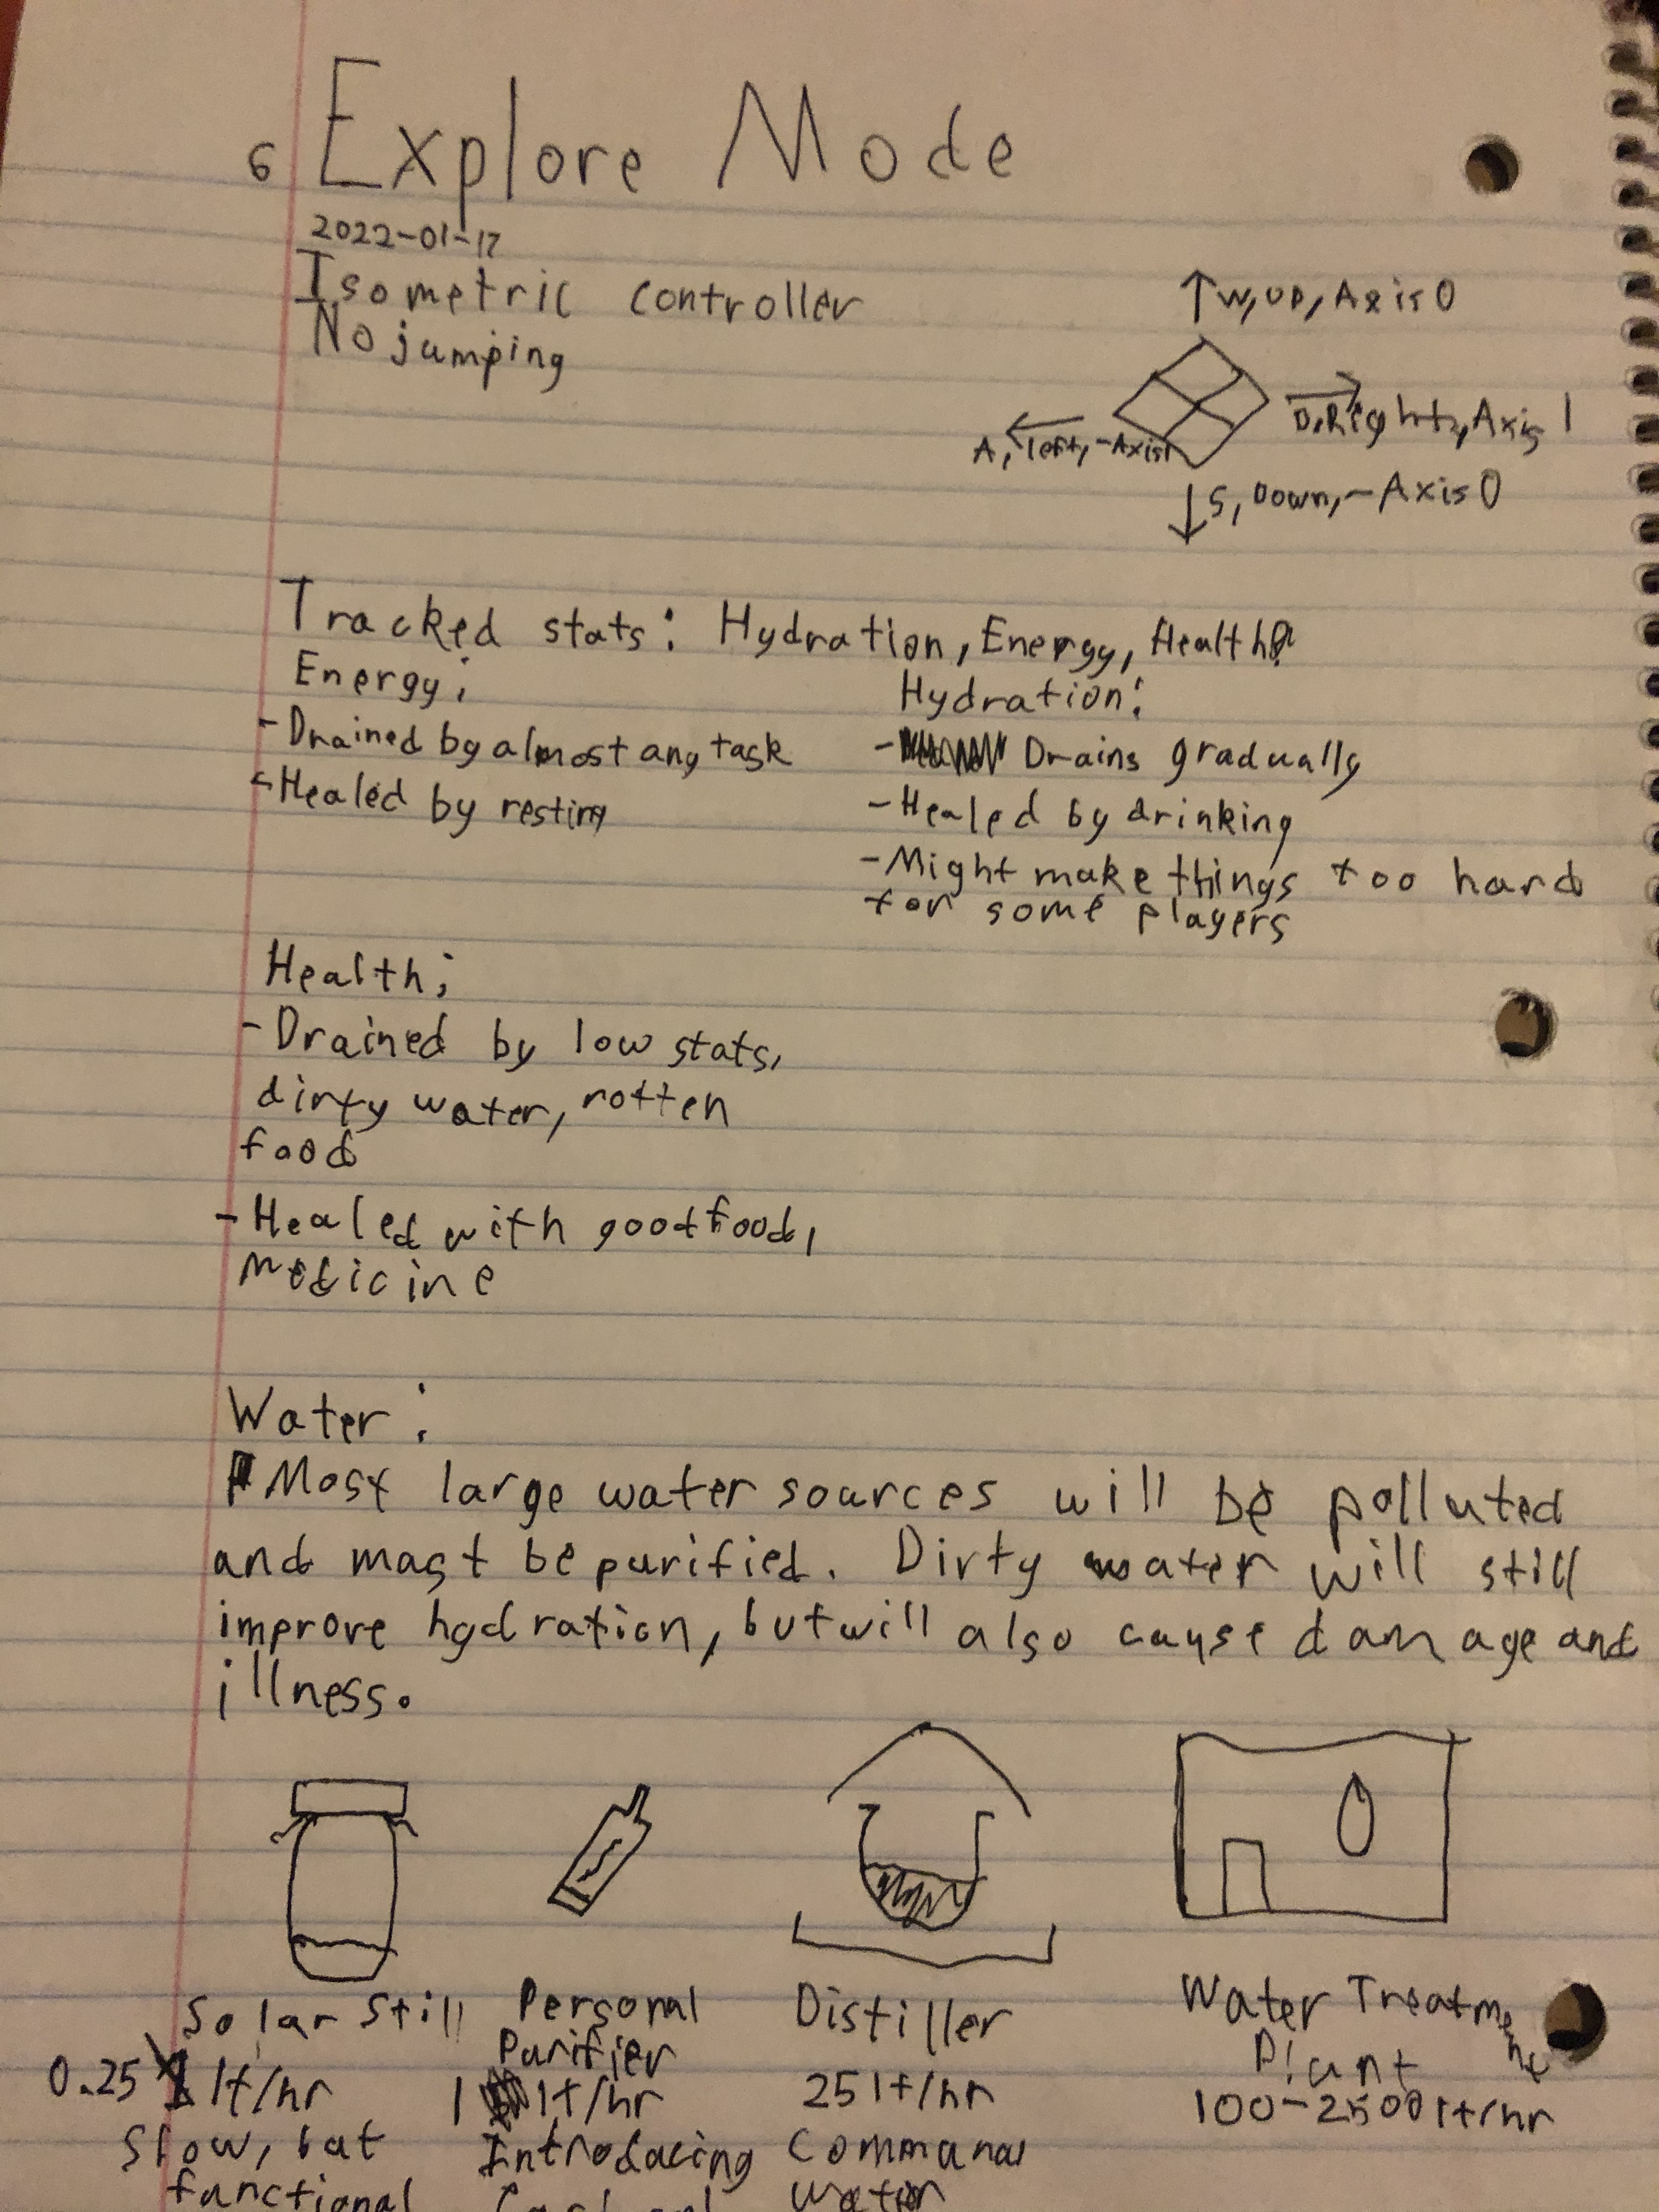 6 Explore Mode
2022-01-17
Isometric controller
No jumping
W, UP, Axis 0
D, Right, Axis 1
A, left, -Axis1
S, Down, -Axis 0
Tracked stats: Hydration, Energy, Health?
Energy:
-Drained by almost any task
-Healed by resting
Hydration:
- Drains gradually
-Healed by drinking
-Might make things too hard
for some players
Health:
-Drained by low stats,
dirty water, rotten
food
-Healed with good food,
medicine
Water:
Most large water sources will be polluted
and must be purified. Dirty water will still
improve hydration, but will also cause damage and
illness.
Solar Still
0.25 lt/hr
Slow, but
functional
Personal
Purifier
1 lt/hr
Introducing
Distiller
25 lt/hr
Communal
water
Water Treatment
Plant
100-2500 lt/hr